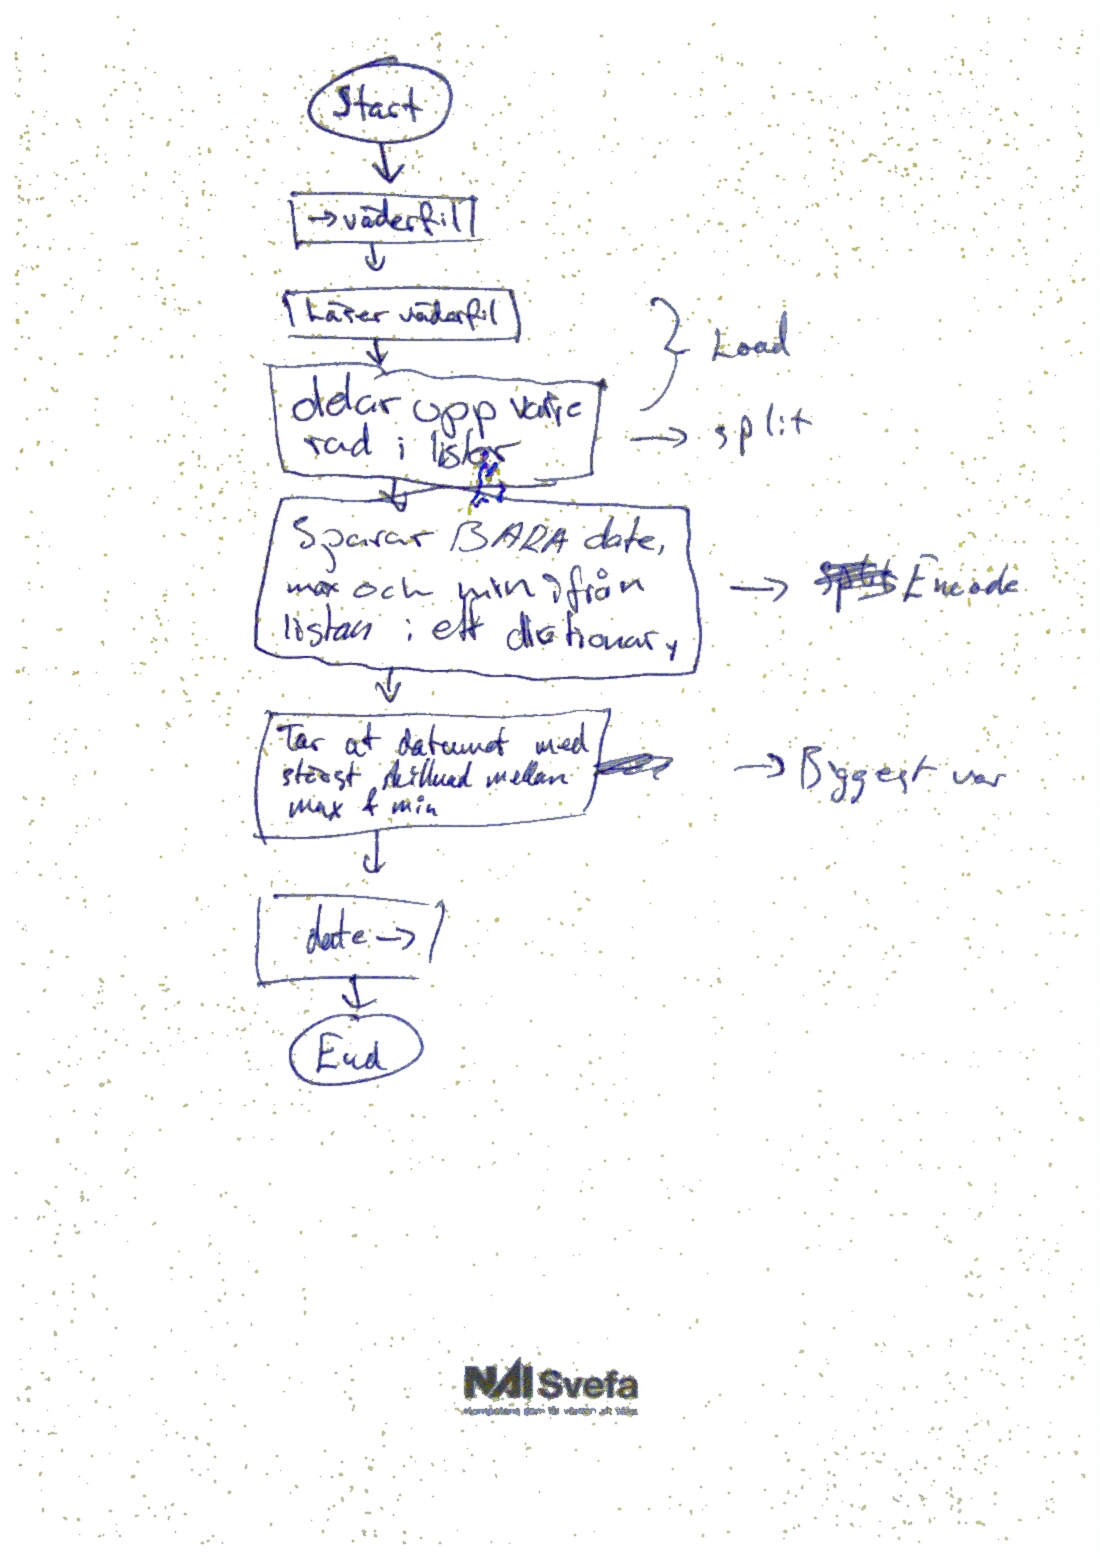 Start
→ väderfil
Läser väderfil
} Load
delar upp varje
rad i listor
→ split
Sparar BARA date,
max och min ifrån
listan i ett dictionary
→ Encode
Tar at datumet med
störst skillnad mellan
max & min
→ Biggest var
date →
End
NAI Svefa